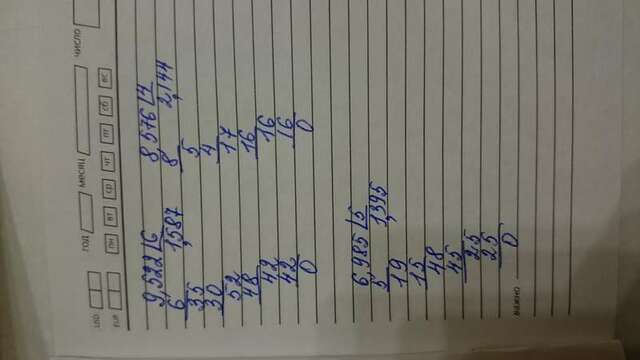 USD ГОД МЕСЯЦ ЧИСЛО
EUR ПН ВТ СР ЧТ ПТ СБ ВС
9,522|6 8,576|4
6 1,587 8 2,144
35 5
30 4
52 17
48 16
42 16
42 16
0 0
6,985|5
5 1,395
19
15
48
45
25
25
0
ВАЖНО